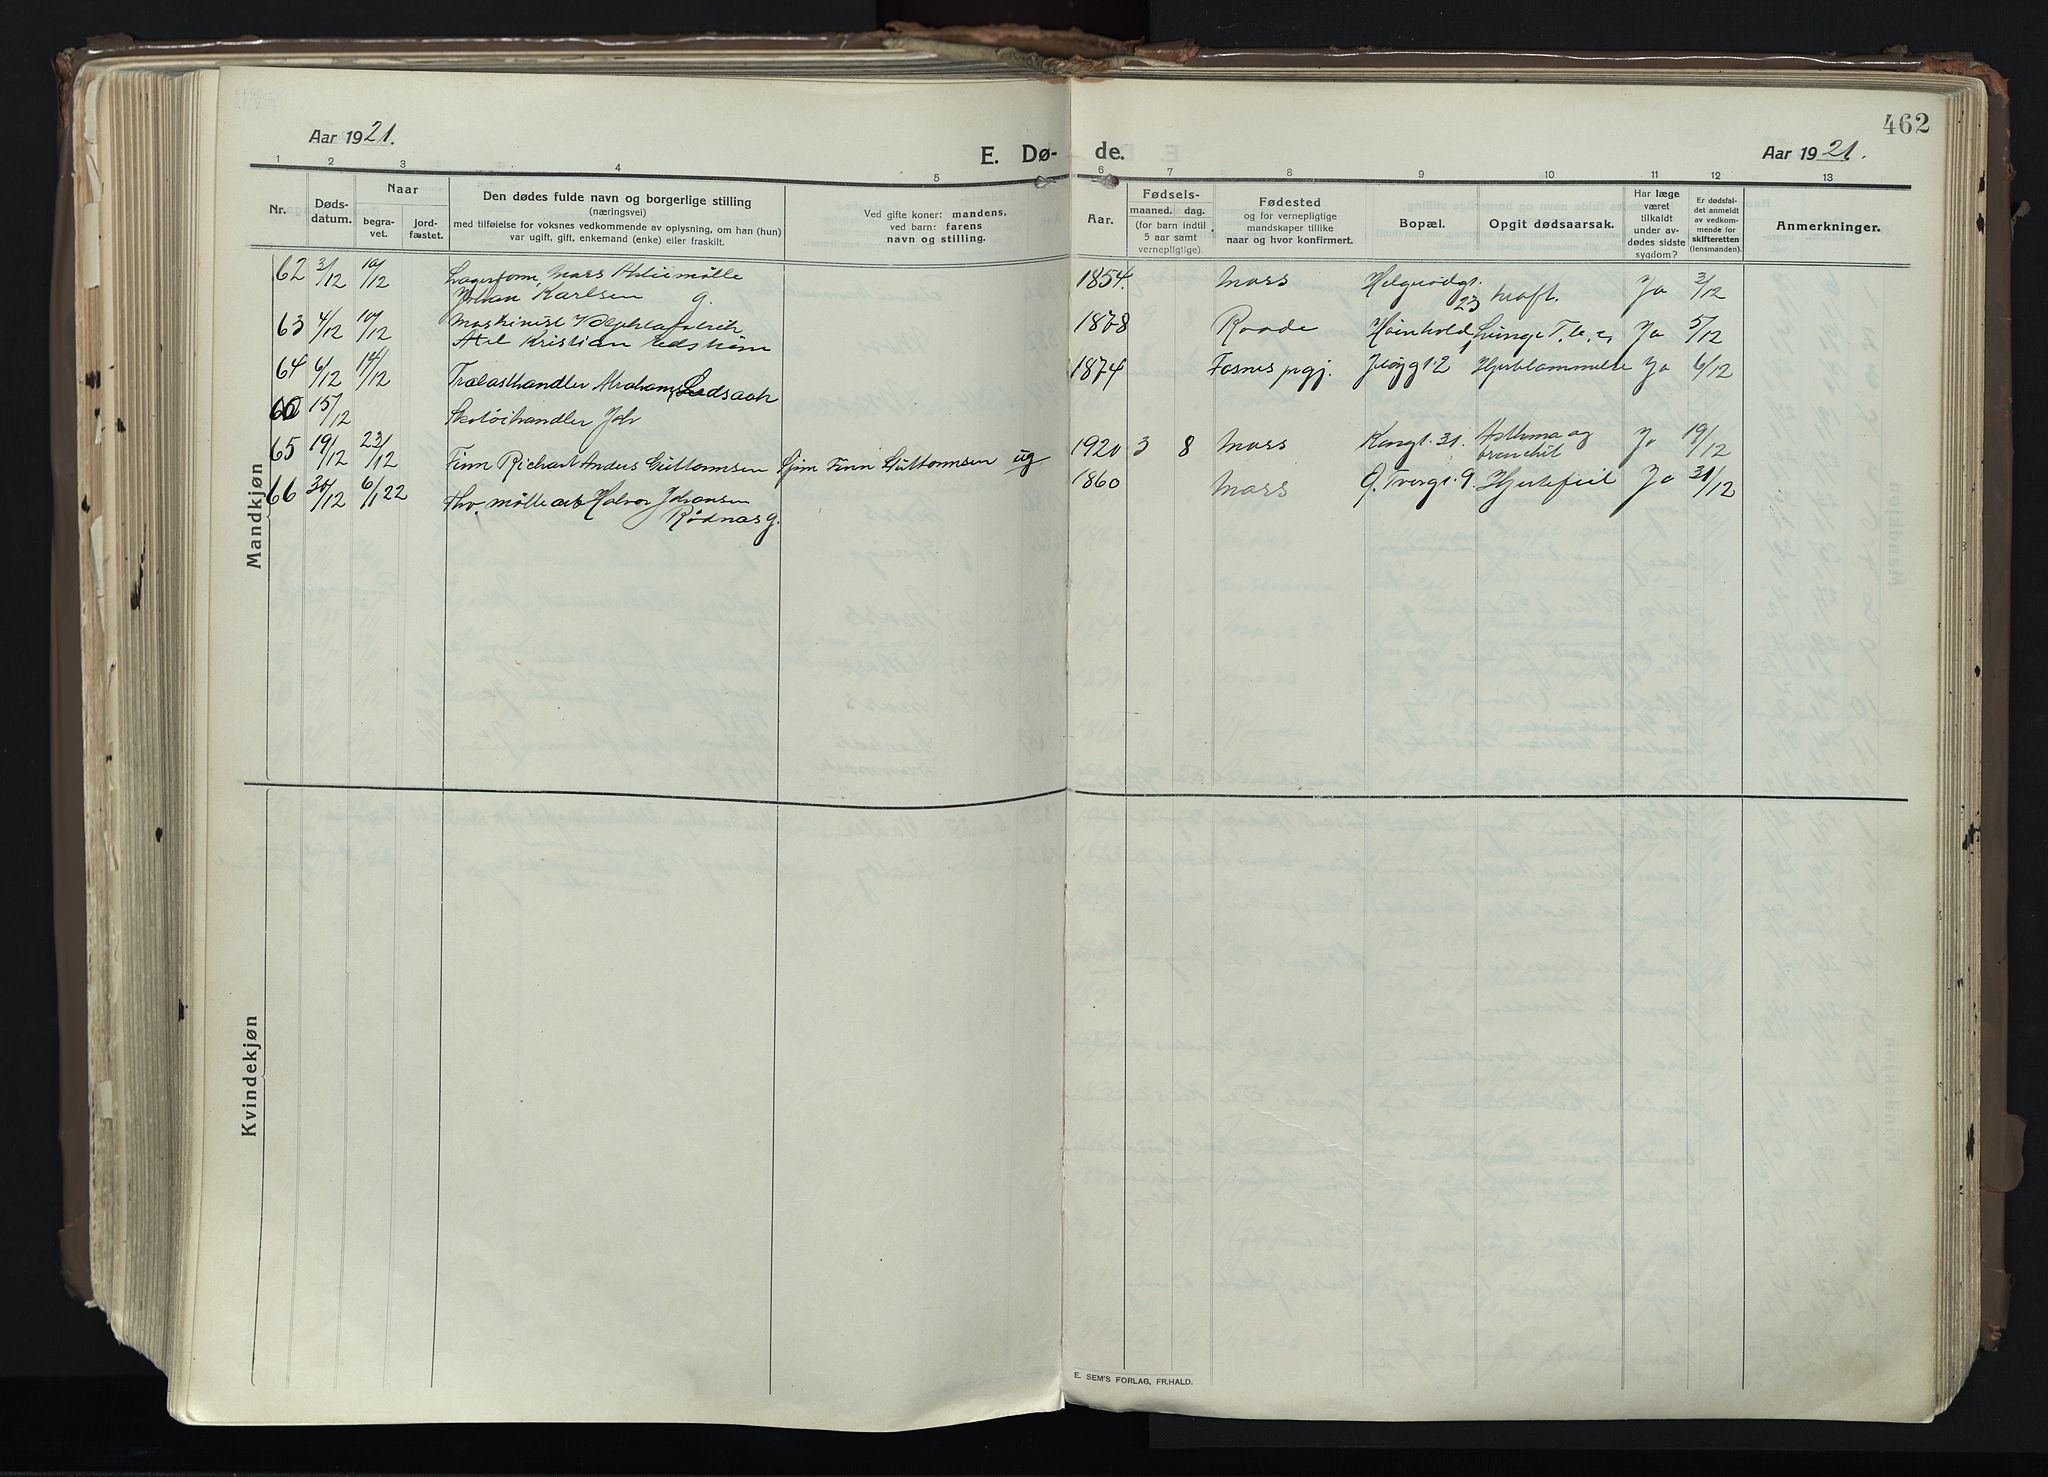 462
Aar 1921.
E. Dø-
de.
Aar 1921.
1 2 3 4 5 6 7 8 9 10 11 12 13
Nr.
Døds-
datum.
Naar
begra-
vet.
jord-
fæstet.
Den dødes fulde navn og borgerlige stilling
(næringsvei)
med tilføielse for voksnes vedkommende av oplysning, om han (hun)
var ugift, gift, enkemand (enke) eller fraskilt.
Ved gifte koner: mandens,
ved barn: farens
navn og stilling.
Aar.
Fødsels-
maaned. dag.
(for barn indtil
5 aar samt
vernepligtige).
Fødested
og for vernepligtige
mandskaper tillike
naar og hvor konfirmert.
Bopæl.
Opgit dødsaarsak.
Har læge
været
tilkaldt
under av-
dødes sidste
sygdom?
Er dødsfal-
det anmeldt
av vedkom-
mende for
skifteretten
(lensmanden).
Anmerkninger.
Mandkjøn
62 3/12 10/12 Lagerform. Moss Aktiemølle 1854. Moss Ja 3/12
Johan Karlsen g. 23
63 4/12 10/12 Maskinist 1878 Raade Lunge T.b.c. Ja 5/12
Kristian
64 6/12 14/12 Trælasthandler Abraham 1874 Fosnes prgj. Ja 6/12
15/12 Skotøihandler Joh
65 19/12 23/12 Finn Richart Anders Guttormsen Finn Guttormsen ug 1920 3 8 Moss Kongt. 31. Asthma og Ja 19/12
bronchit
66 30/12 6/1 22 Fhv. mølle arb Halvor Johansen 1860 Moss Ø. Tvergt. 9. Hjertefeil Ja 31/12
Rødnas g.
Kvindekjøn
E. SEM'S FORLAG, FR.HALD.